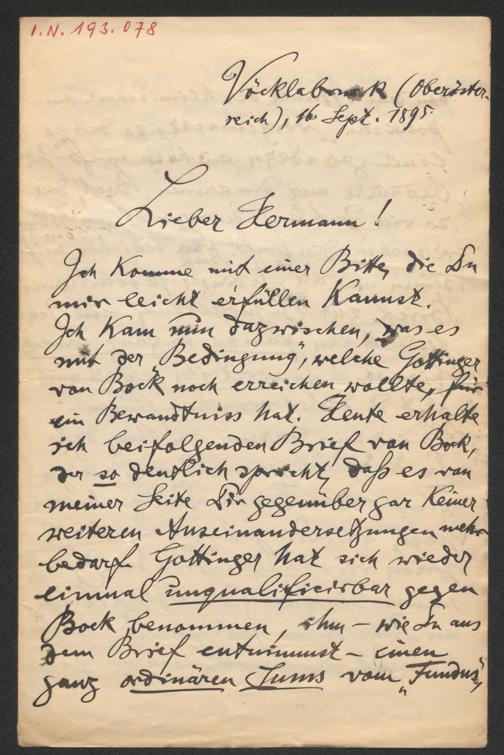 I.N. 193.078
Vöcklabruck (Oberöster-
reich), 16. Sept. 1895.
Lieber Hermann!
Ich komme mit einer Bitte, die Du
mir leicht erfüllen kannst.
Ich kam nun dazwischen, was es
mit der "Bedingung", welche Gottinger
von Bock noch erreichen wollte, für
ein Bewandtniss hat. Heute erhalte
ich beifolgenden Brief von Bock,
der so deutlich spricht, daß es von
meiner Seite Dir gegenüber gar keiner
weiteren Auseinandersetzungen mehr
bedarf. Gottinger hat sich wieder
einmal unqualificirbar gegen
Bock benommen, ihm – wie Du aus
dem Brief entnimmst – einen
ganz ordinären vom "Fundus",